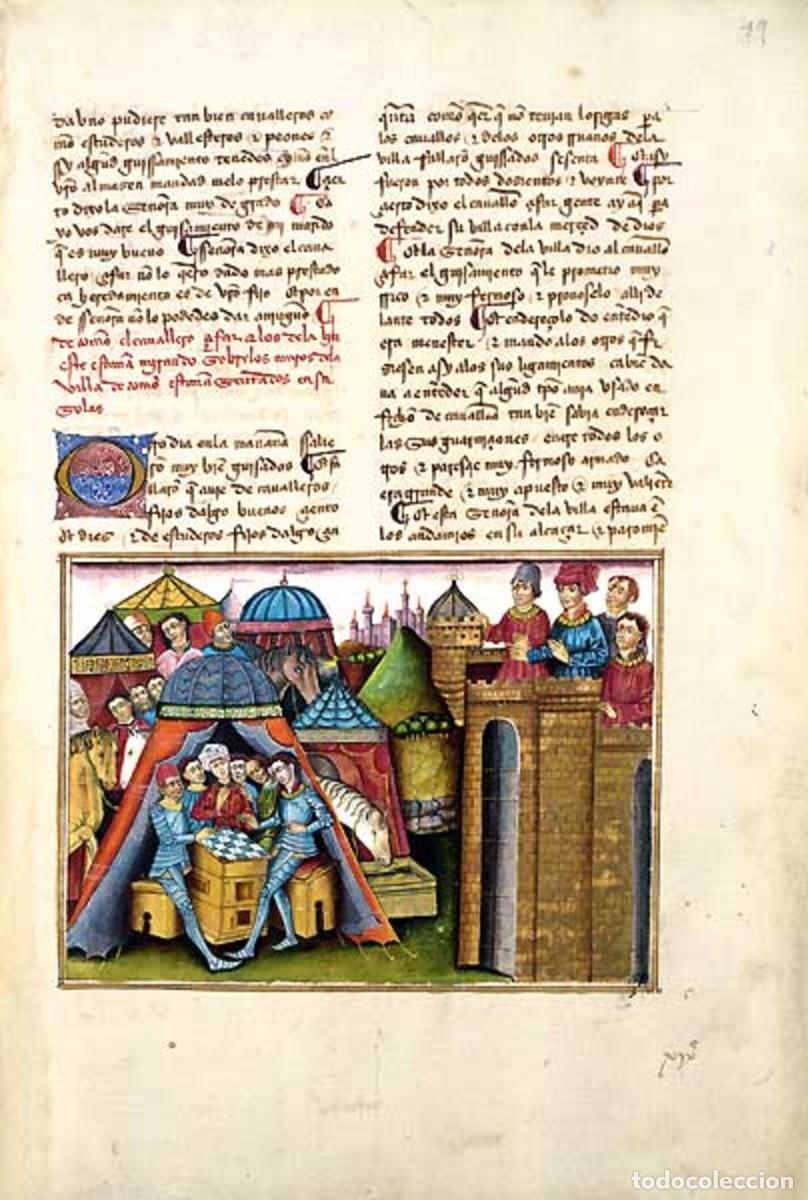 19
da vno pudiere tan bien caualleros co
mo escuderos & vallesteros & peones &
sy algund guisamiento tenedes en
vro almasen mandat melo prestar ¶ çier
to dixo la señora muy de grado ¶ ca
yo vos dare el guisamiento de mi marido
que es muy bueno ¶ señora dixo el caua
llero çifar non lo quiero dado mas prestado
ca heredamiento es de vro fijo & por en
de señora non lo podedes dar a ninguno ¶
de como el cauallero çifar & los de la hu
este estauan mirando sobre los muros de la
villa de como estauan sentados en su
solas
Otro dia en la mañana salie
ro muy bien guisados ¶ & fa
llaro que auie de caualleros
fijos dalgo buenos çiento
& dies & de escuderos fijos dalgo
como quier que non tenian lorigas pa
los cauallos & de los otros ruanos de la
villa fallaro guisados sesenta ¶ & asy
fueron por todos dosientos & veynte ¶ por
çierto dixo el cauallero çifar gente ay aqui pa
defender su villa con la merçed de dios
¶ & la señora de la villa dio al cauallero
çifar el guisamiento que le prometio muy
rico & muy fermoso & prouoselo alli de
lante todos ¶ & endereçolo do entendio que
era menester & mando a los otros que fi
siesen asy a los sus guisamientos & bie da
ua a entender que algund tpo auia vsado en
fecho de caualleria tan bie sabia endereçar
las sus guarniones entre todos los o
tros & paresie muy fermoso armado
era grande & muy apuesto & muy valiente
¶ & esta señora de la villa estaua en
los andamios en su alcaçar & paro mie
todocoleccion